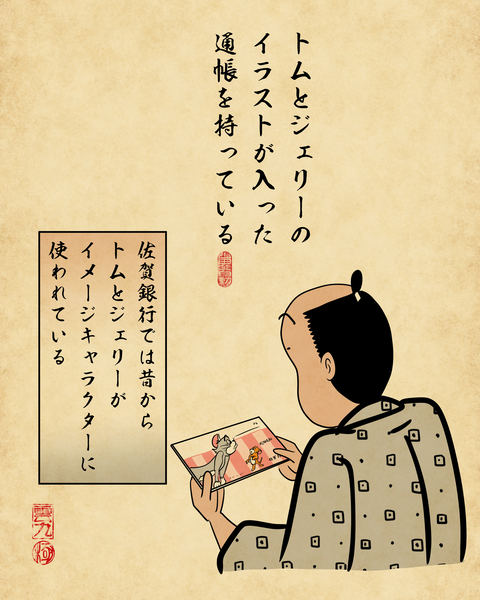 トムとジェリーの
イラストが入った
通帳を持っている
佐賀銀行では昔から
トムとジェリーが
イメージキャラクターに
使われている